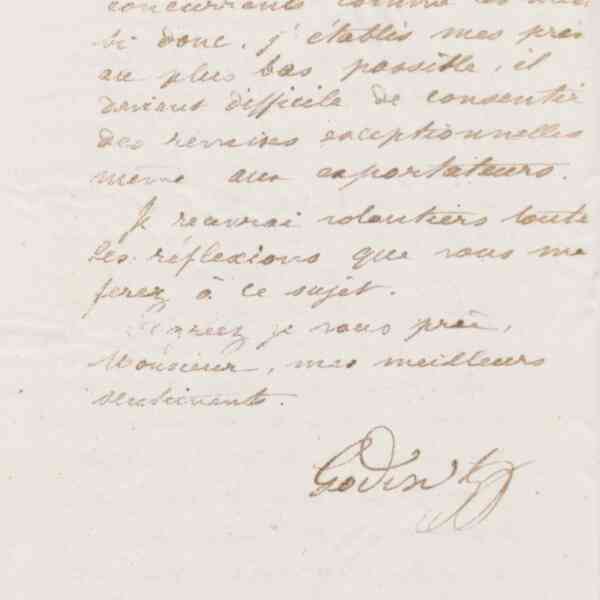 concurrents comme
bi donc, j'établis mes prix
au plus bas possible, il
devient difficile de consentir
des remises exceptionnelles
même aux exportateurs.
Je recevrai volontiers toute
les réflexions que vous me
ferez à ce sujet.
Agréez je vous prie,
Monsieur, mes meilleurs
sentiments.
Godin